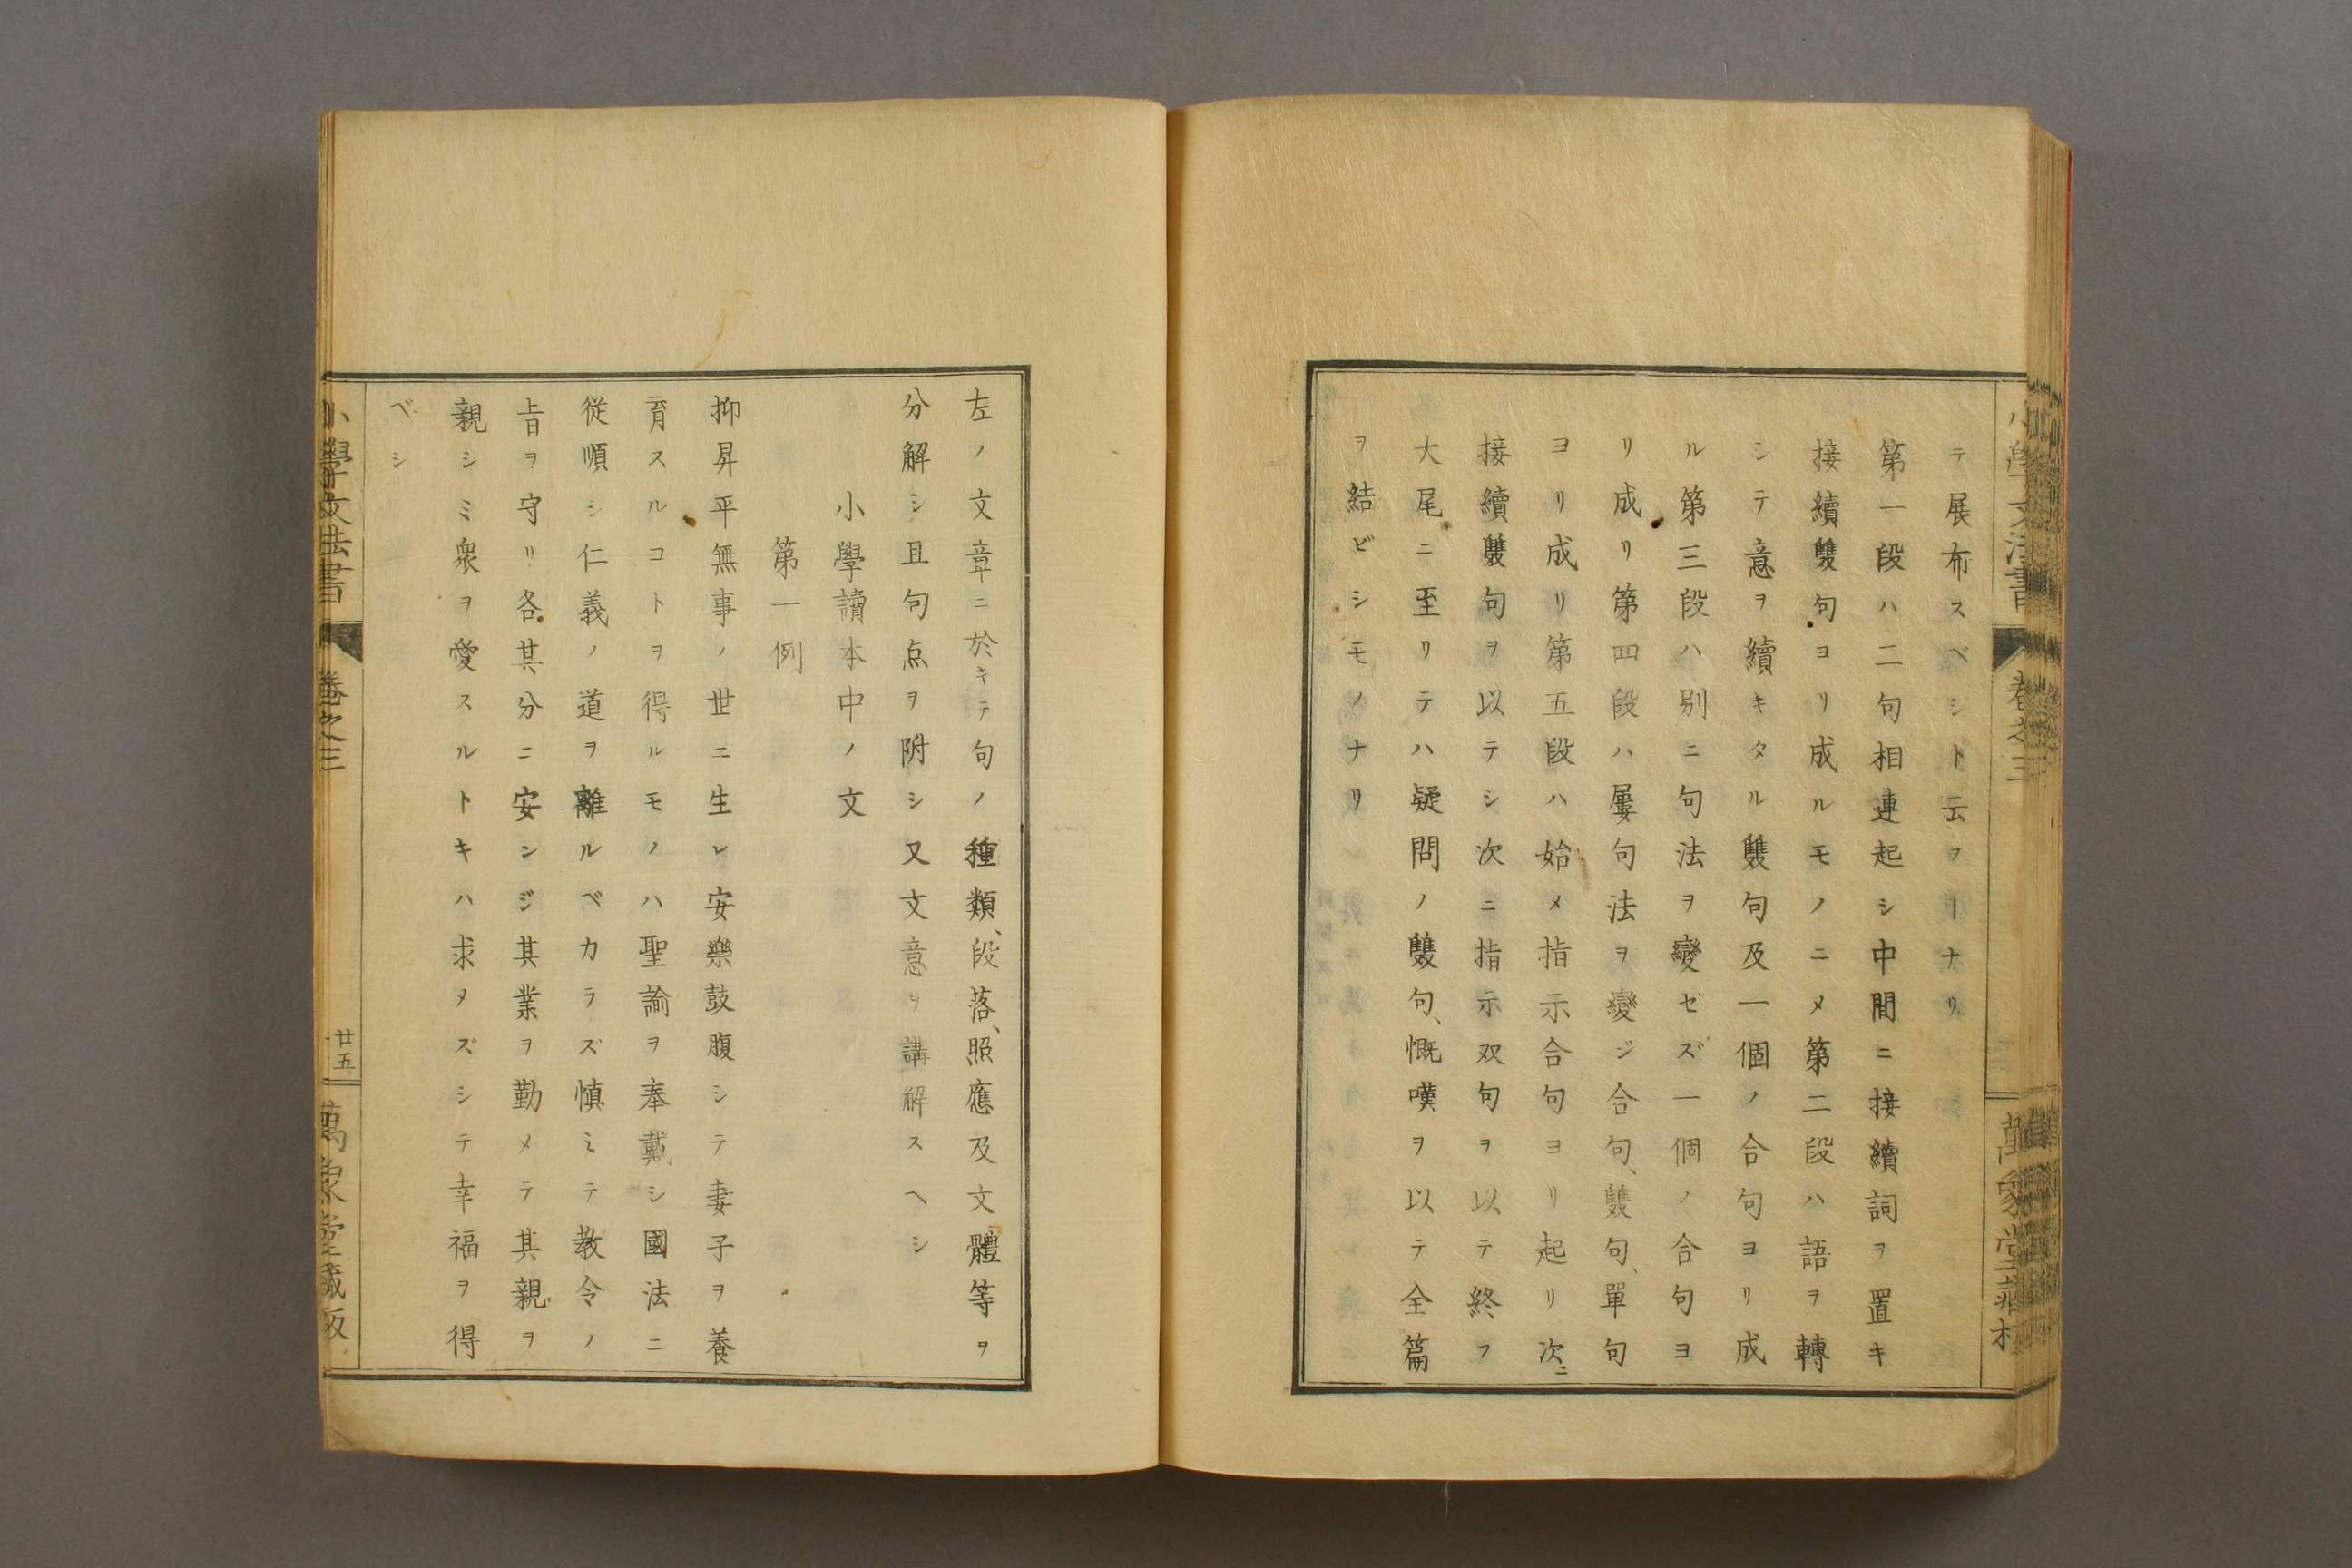 テ展布スベシト云フヿナリ
第一段ハ二句相連起シ中間ニ接續詞ヲ置キ
接續雙句ヨリ成ルモノニメ第二段ハ語ヲ轉
シテ意ヲ續キタル雙句及一個ノ合句ヨリ成
ル第三段ハ別ニ句法ヲ變ゼズ一個ノ合句ヨ
リ成リ第四段ハ屢句法ヲ變ジ合句、雙句、單句
ヨリ成リ第五段ハ始メ指示合句ヨリ起リ次ニ
接續雙句ヲ以テシ次ニ指示双句ヲ以テ終フ
大尾ニ至リテハ疑問ノ雙句、慨嘆ヲ以テ全篇
ヲ結ビシモノナリ
左ノ文章ニ於キテ句ノ種類、段落、照應及文體等ヲ
分解シ且句点ヲ附シ又文意ヲ講解スヘシ
小學讀本中ノ文
第一例
抑昇平無事ノ世ニ生レ安樂鼓腹シテ妻子ヲ養
育スルコトヲ得ルモノハ聖諭ヲ奉戴シ國法ニ
從順シ仁義ノ道ヲ離ルベカラズ愼ミテ教令ノ
旨ヲ守リ各其分ニ安ンジ其業ヲ勤メテ其親ヲ
親シミ衆ヲ愛スルトキハ求メズシテ幸福ヲ得
ベシ
小學文法書 卷之三 廿五 萬象堂藏版